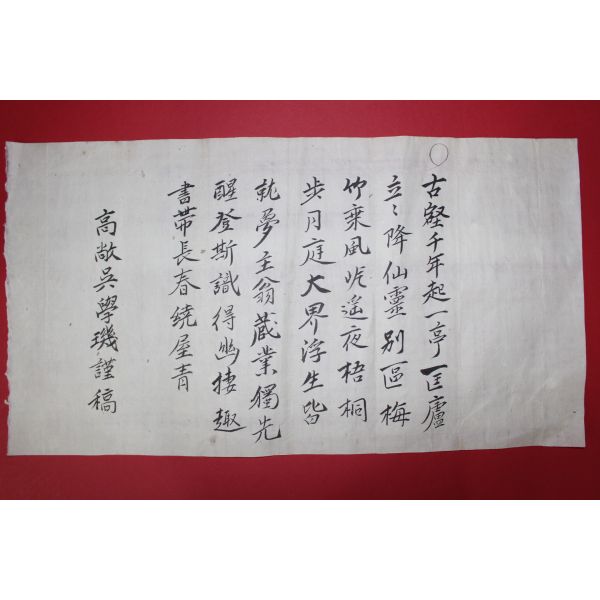 古壑千年起一亭匡廬
立〻降仙靈別區梅
竹乘風遙夜梧桐
步月庭大界浮生皆
就夢主翁藏業獨先
醒登斯識得幽棲趣
書帶長春繞屋青
高敞吳學璣謹稿